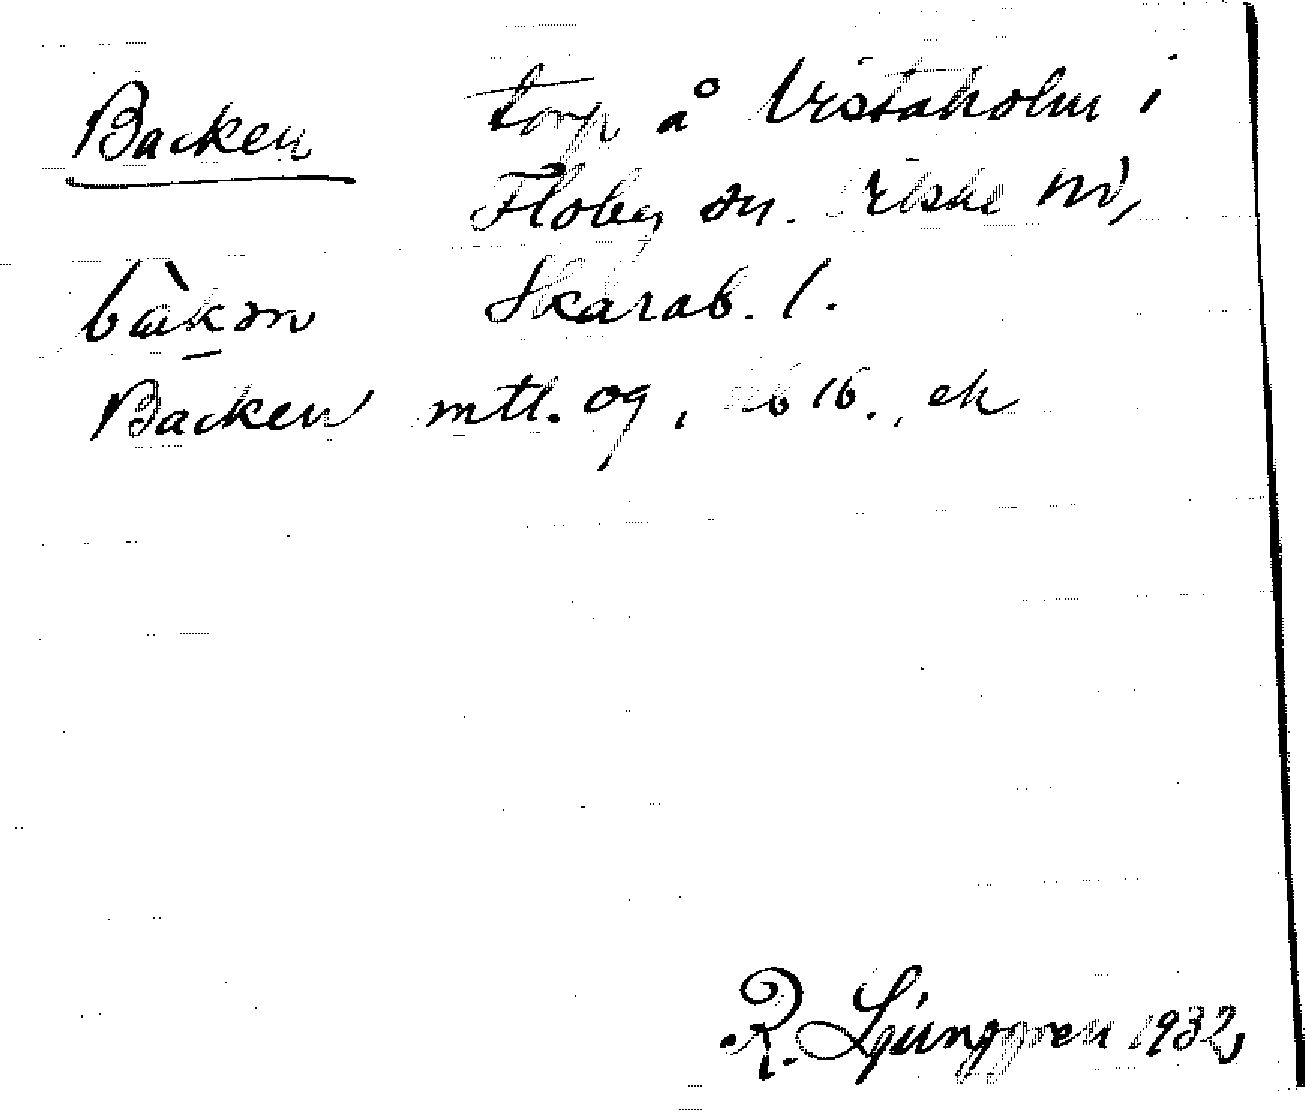 Backen torp å Vistaholm i
Floby sn. Vilske hd,
bàkən Skarab. l.
Backen mtl. og, 16., ek
R. Ljunggren 1932,